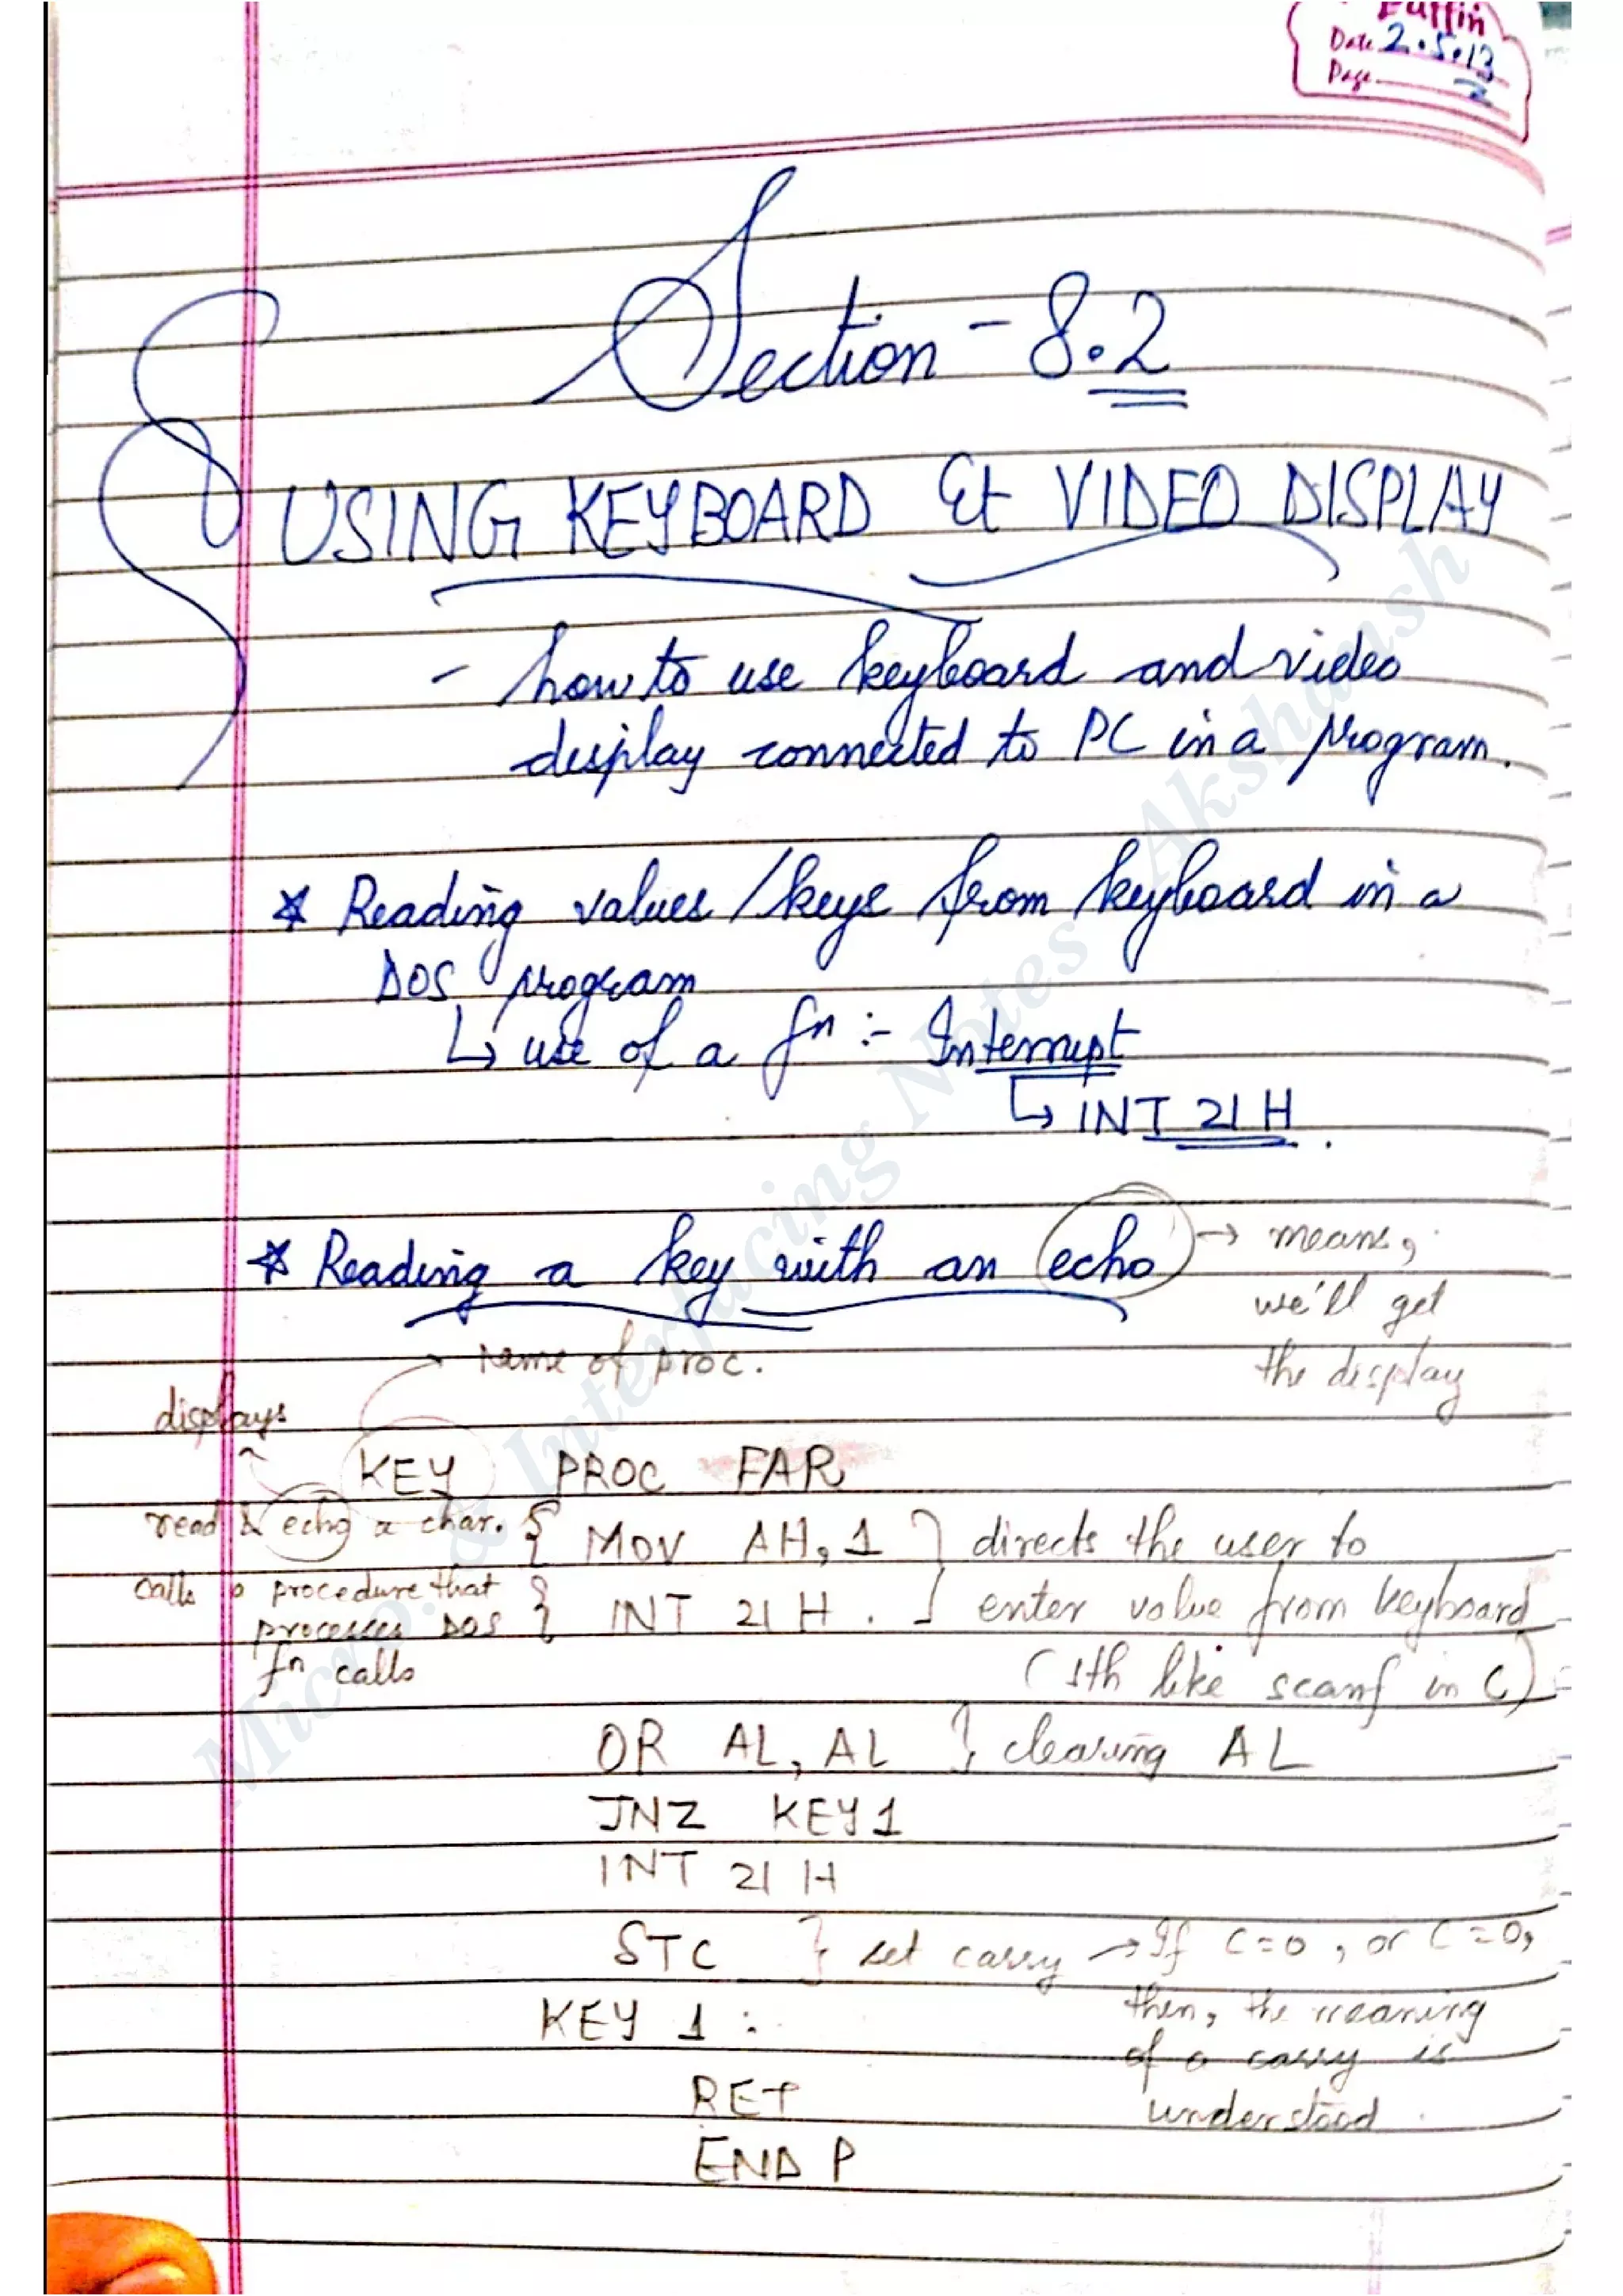 Puffin
Date 2.5.13
Page 2
Section - 8.2
USING KEYBOARD & VIDEO DISPLAY
- how to use keyboard and video
display connected to PC in a program.
* Reading values / keys from keyboard in a
DOS program
↳ use of a fn :- Interrupt
↳ INT 21 H.
* Reading a key with an echo → means,
we'll get
the display
name of proc.
displays
KEY PROC FAR
read & echo a char. { MOV AH, 1 } directs the user to
calls a procedure that
processes DOS
fn calls
{ INT 21 H. } enter value from keyboard
(sth like scanf in C)
OR AL, AL } clearing AL
JNZ KEY1
INT 21 H
STC } set carry → If C=0, or C=0,
then, the meaning
of a carry is
understood.
KEY 1 :
RET
END P
Micro. & Interfacing Notes Akshansh